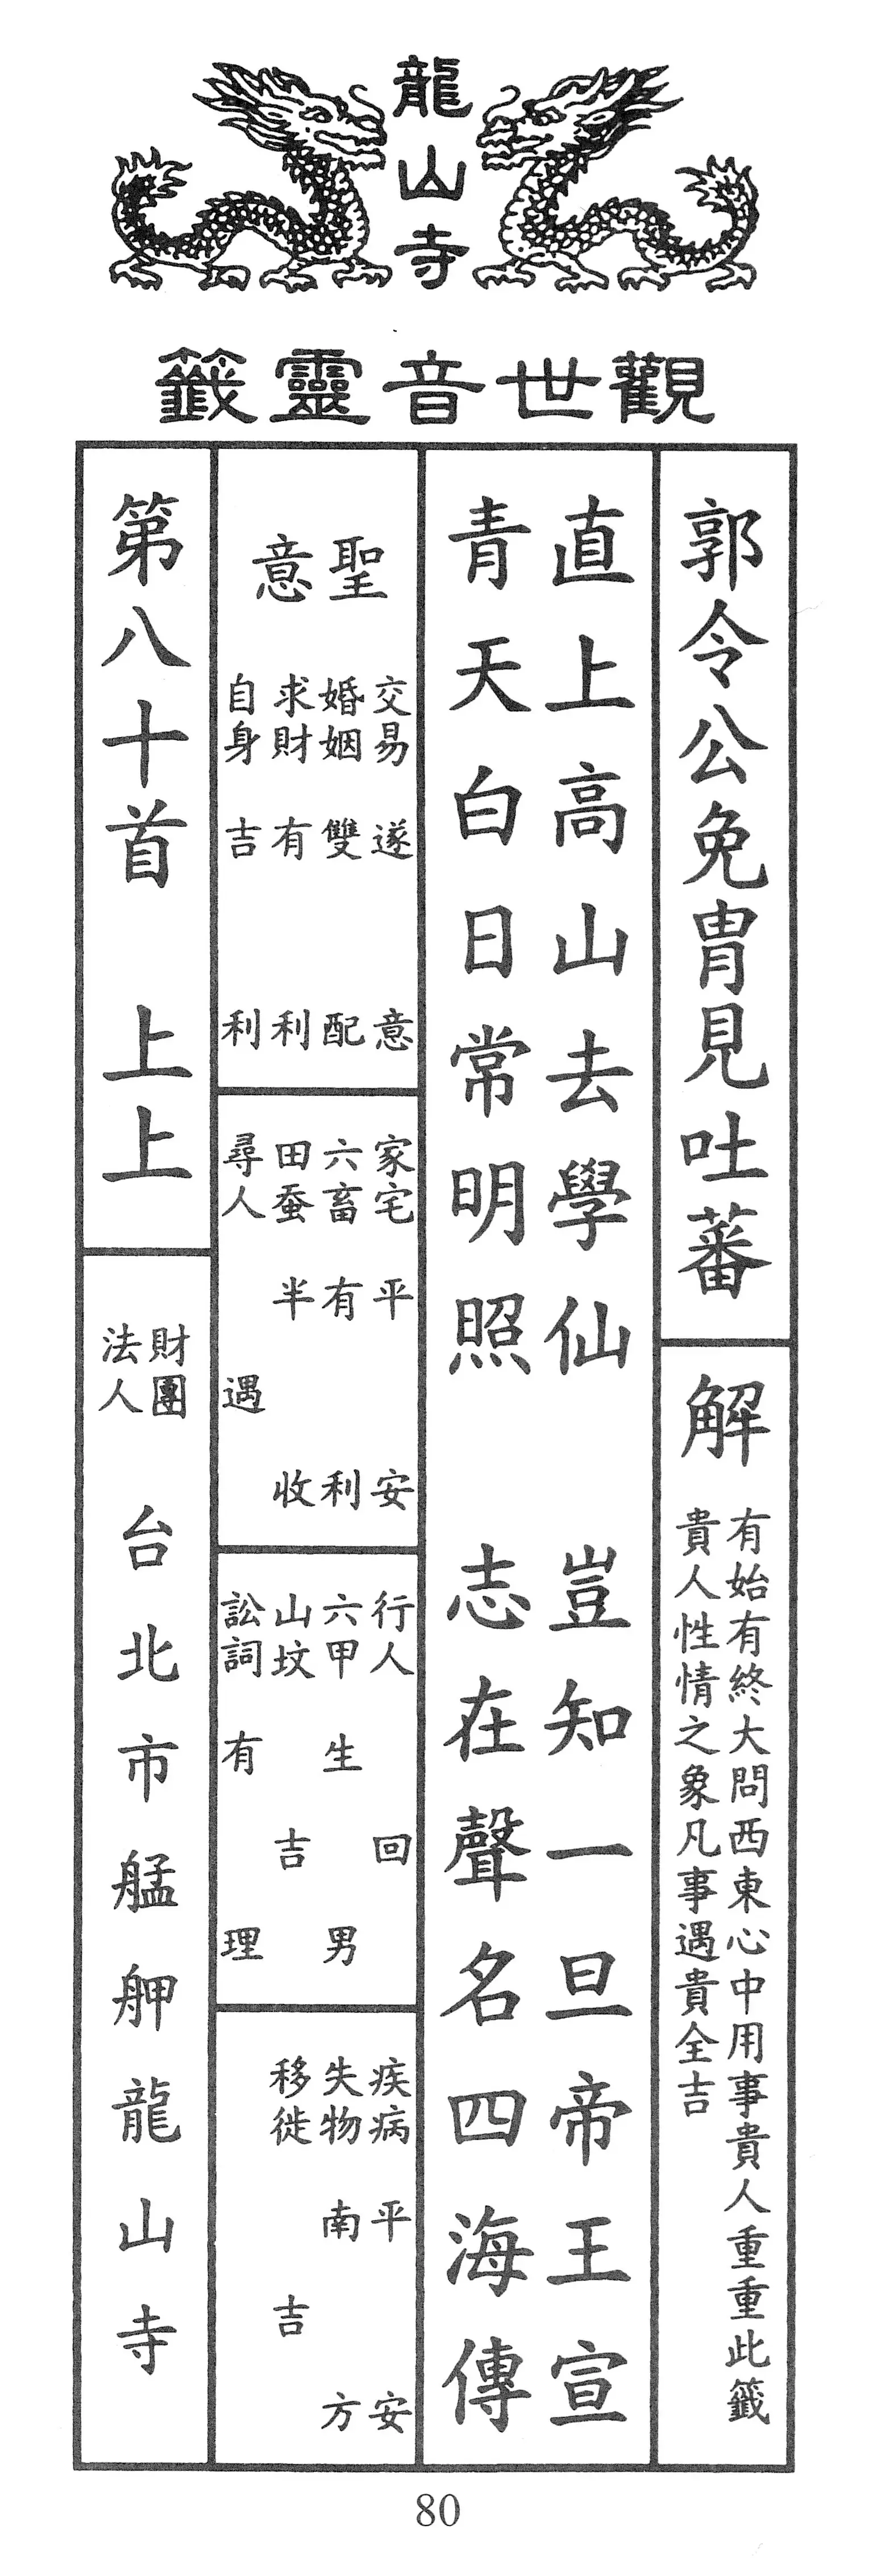 龍山寺
觀世音靈籤
郭令公免冑見吐蕃
解
有始有終大問西東心中用事貴人重重此籤
貴人性情之象凡事遇貴全吉
直上高山去學仙 豈知一旦帝王宣
青天白日常明照 志在聲名四海傳
聖意
交易 遂意
婚姻 雙配
求財 有利
自身 吉利
家宅 平安
六畜 有利
田蚕 半收
尋人 遇
行人 回
六甲 生男
山坟 吉
訟詞 有理
疾病 平安
失物 南方
移徙 吉
第八十首 上上
財團
法人
台北市艋舺龍山寺
80